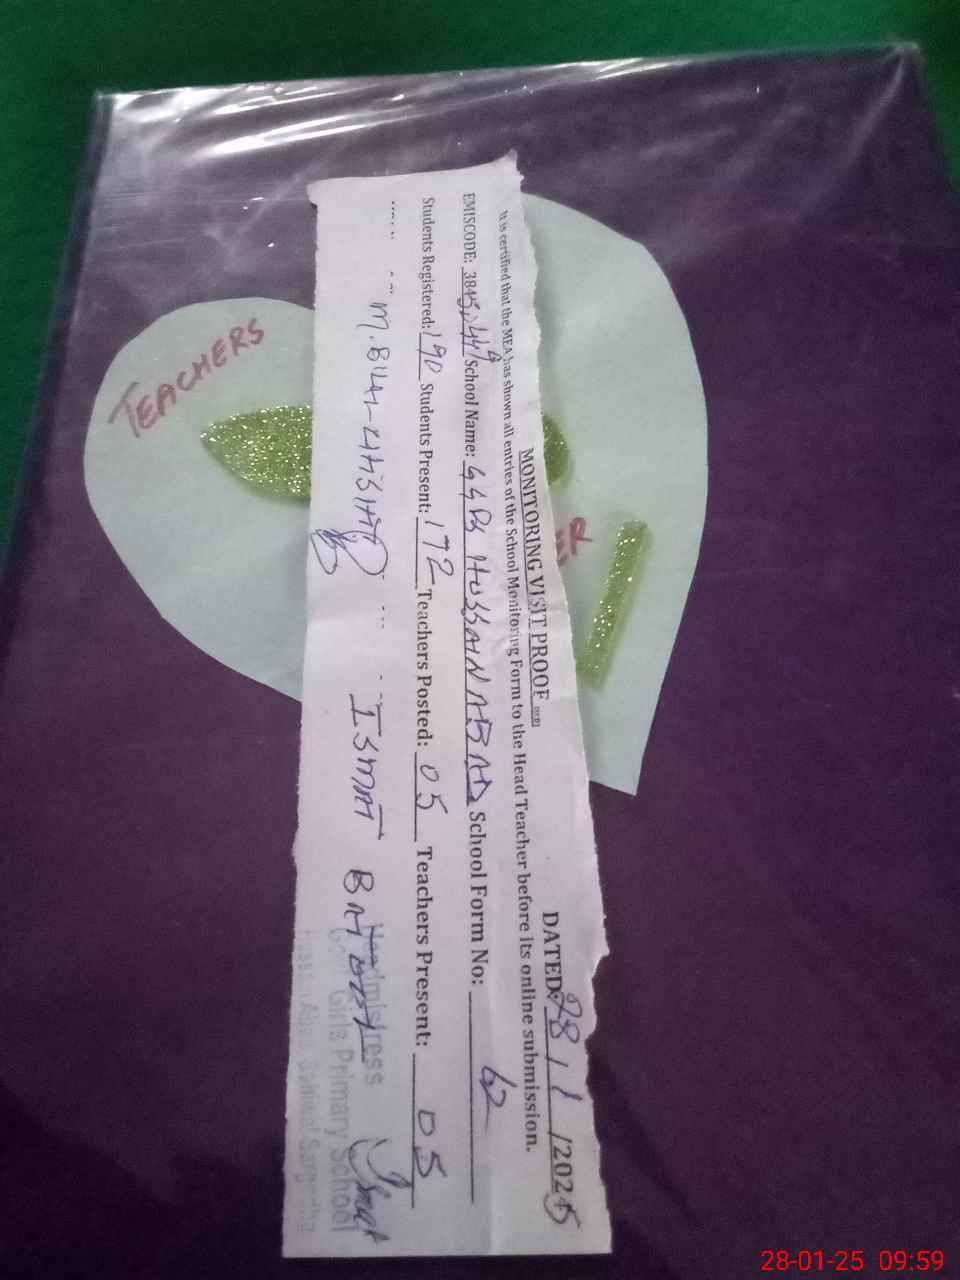 TEACHERS
ER
MONITORING VISIT PROOF DATED 28/1/2025
It is certified that the MEA has shown all entries of the School Monitoring Form to the Head Teacher before its online submission.
EMISCODE: School Name: GGPS HUSSAINABAD School Form No: 62
Students Registered: 190 Students Present: 172 Teachers Posted: 05 Teachers Present: 05
ISMAT BATOOL
Headmistress
Govt Girls Primary School
Sahiwal Sargodha
28-01-25 09:59